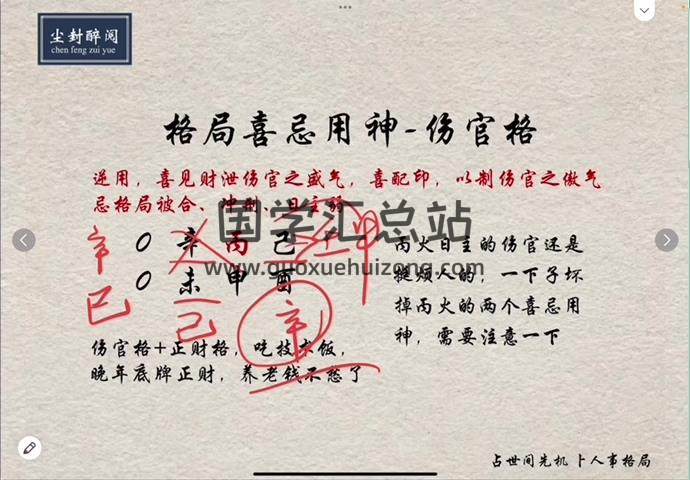 尘封醉阅
chen feng zui yue
格局喜忌用神-伤官格
逆用，喜见财泄伤官之盛气，喜配印，以制伤官之傲气
忌格局被合、冲刑、日主弱
国学汇总站
www.guoxuehuizong.com
辛 0 辛 丙 己 甲
巳 0 未 甲 酉
己 辛
丙火日主的伤官还是
挺烦人的，一下子坏
掉丙火的两个喜忌用
神，需要注意一下
伤官格+正财格，吃技术饭，
晚年底牌正财，养老钱不愁了
占世间先机 卜人事格局